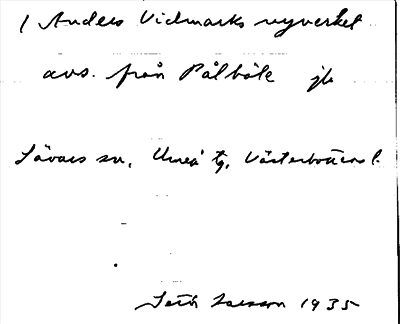 / Anders Vidmarks nyverket
avs. från Pålböle jb
Sävars sn, Umeå tg, Västerbottens l.
Larsson 1935